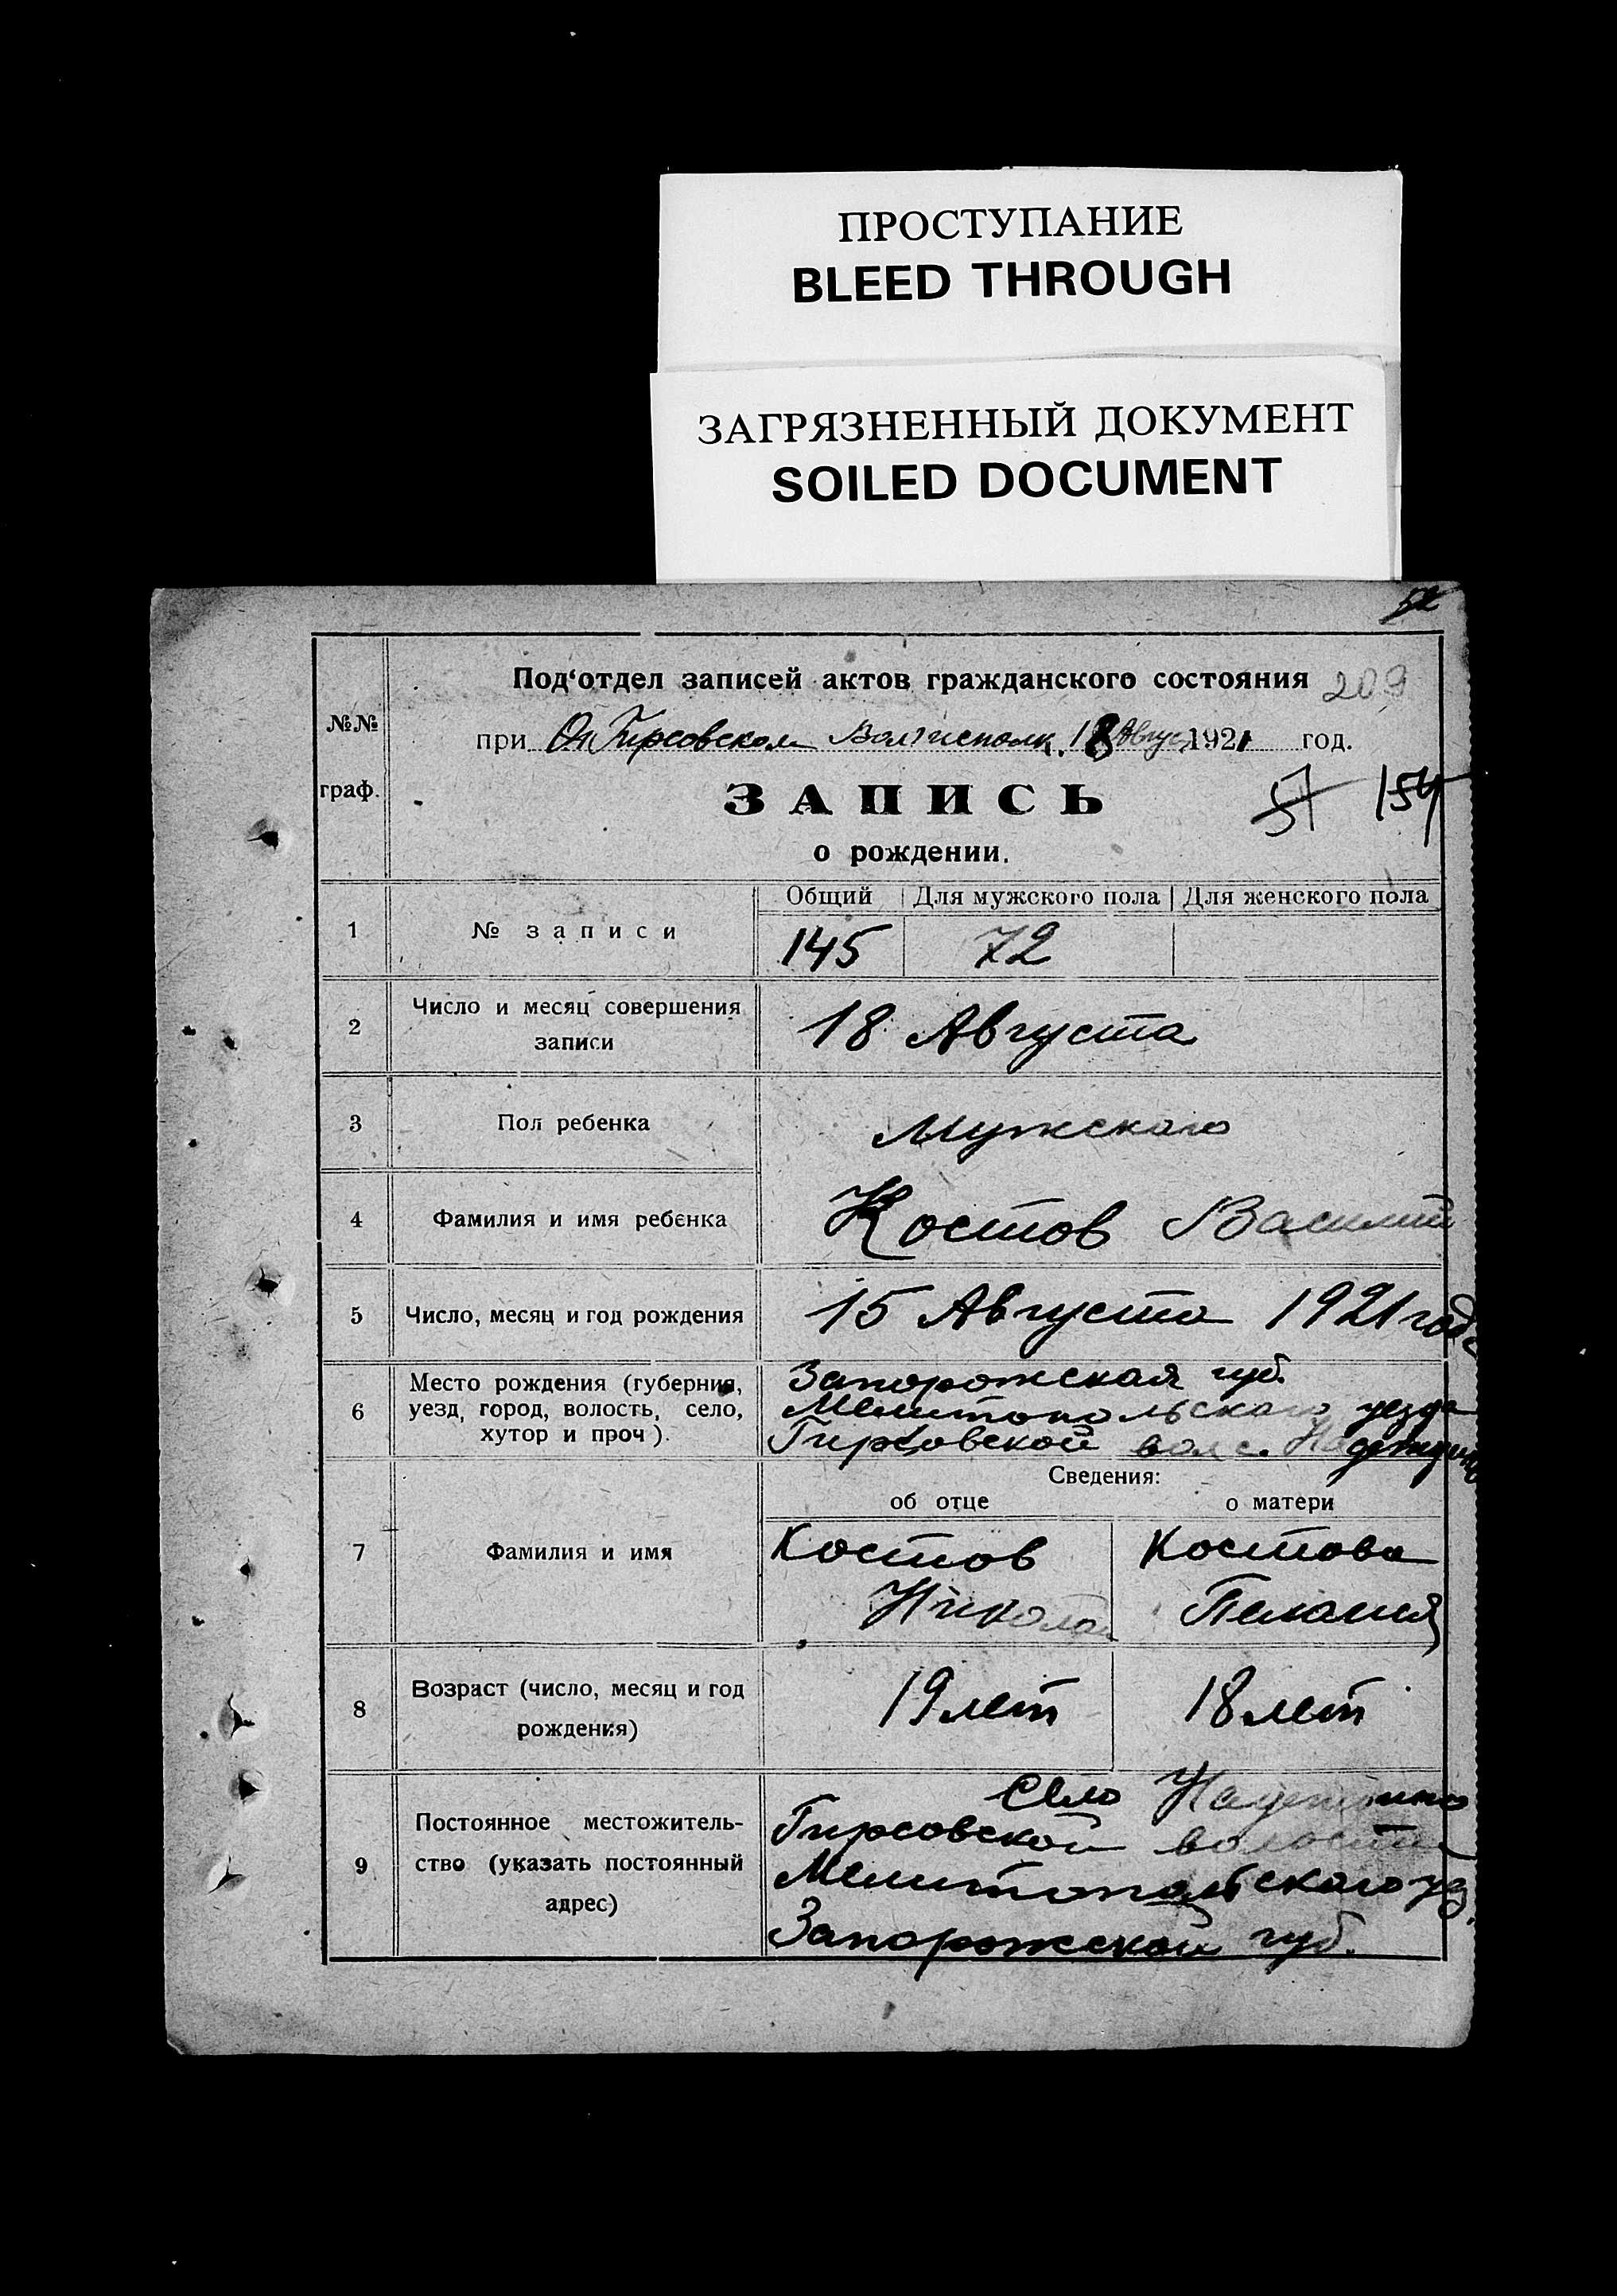 ПРОСТУПАНИЕ
BLEED THROUGH
ЗАГРЯЗНЕННЫЙ ДОКУМЕНТ
SOILED DOCUMENT
52
Под‘отдел записей актов гражданского состояния 209
№№ граф.
при Гирсовском Волисполк. 18 Авгус 1921 год.
ЗАПИСЬ
57 154
о рождении.
Общий Для мужского пола Для женского пола
1 № записи 145 72
2 Число и месяц совершения записи 18 Августа
3 Пол ребенка Мужского
4 Фамилия и имя ребенка Костов Василий
5 Число, месяц и год рождения 15 Августа 1921 года
6 Место рождения (губерния, уезд, город, волость, село, хутор и проч).
Запорожская губ.
Мелитопольского уезда
Гирсовской вол с.
Сведения:
об отце о матери
7 Фамилия и имя
Костов Костова
Николай Пелагия
8 Возраст (число, месяц и год рождения) 19 лет 18 лет
9 Постоянное местожительство (указать постоянный адрес)
Село
Гирсовской волости
Мелитопольского уез.
Запорожской губ.